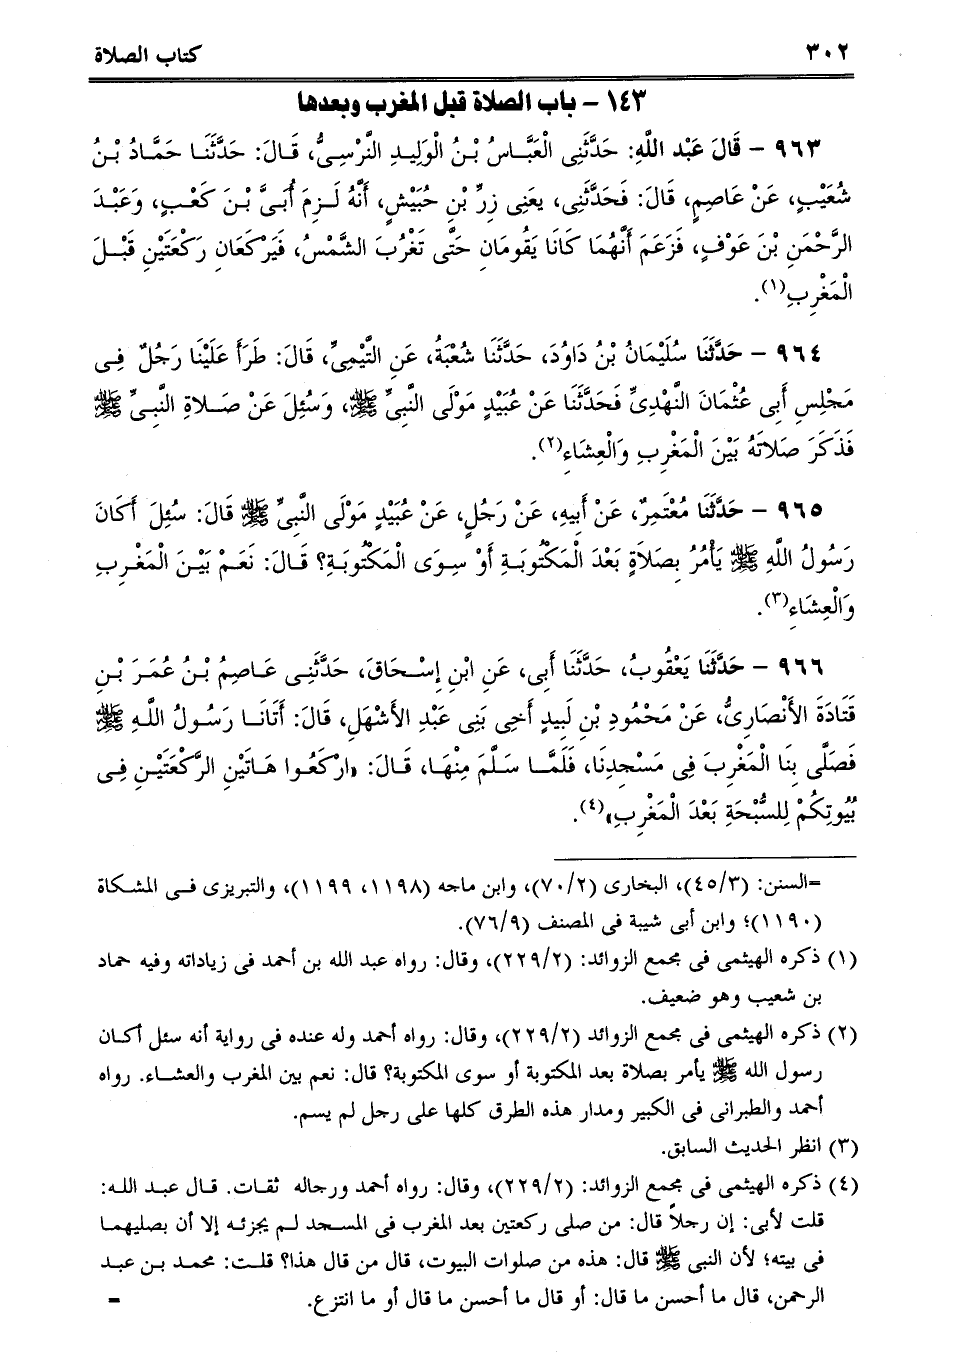 ٣٠٢ كتاب الصلاة
١٤٣ - باب الصلاة قبل المغرب وبعدها
٩٦٣ - قَالَ عَبْد اللَّهِ: حَدَّثَنِى الْعَبَّاسُ بْنُ الْوَلِيدِ النَّرْسِىُّ، قَالَ: حَدَّثَنَا حَمَّادُ بْنُ
شُعَيْبٍ، عَنْ عَاصِمٍ، قَالَ: فَحَدَّثَنِى، يَعْنِى زِرِّ بْنِ حُبَيْشٍ، أَنَّهُ لَزِمَ أُبَىَّ بْنَ كَعْبٍ، وَعَبْدَ
الرَّحْمَنِ بْنَ عَوْفٍ، فَزَعَمَ أَنَّهُمَا كَانَا يَقُومَانِ حَتَّى تَغْرُبَ الشَّمْسُ، فَيَرْكَعَانِ رَكْعَتَيْنِ قَبْلَ
الْمَغْرِبِ(١).
٩٦٤ - حَدَّثَنَا سُلَيْمَانُ بْنُ دَاوُدَ، حَدَّثَنَا شُعْبَةُ، عَنِ التَّيْمِىِّ، قَالَ: طَرَأَ عَلَيْنَا رَجُلٌ فِى
مَجْلِسِ أَبِى عُثْمَانَ النَّهْدِىِّ فَحَدَّثَنَا عَنْ عُبَيْدٍ مَوْلَى النَّبِىِّ ﷺ، وَسُئِلَ عَنْ صَلاَةِ النَّبِىِّ ﷺ
فَذَكَرَ صَلاَتَهُ بَيْنَ الْمَغْرِبِ وَالْعِشَاءِ(٢).
٩٦٥ - حَدَّثَنَا مُعْتَمِرٌ، عَنْ أَبِيهِ، عَنْ رَجُلٍ، عَنْ عُبَيْدٍ مَوْلَى النَّبِىِّ ﷺ قَالَ: سُئِلَ أَكَانَ
رَسُولُ اللَّهِ ﷺ يَأْمُرُ بِصَلاَةٍ بَعْدَ الْمَكْتُوبَةِ أَوْ سِوَى الْمَكْتُوبَةِ؟ قَالَ: نَعَمْ بَيْنَ الْمَغْرِبِ
وَالْعِشَاءِ(٣).
٩٦٦ - حَدَّثَنَا يَعْقُوبُ، حَدَّثَنَا أَبِى، عَنِ ابْنِ إِسْحَاقَ، حَدَّثَنِى عَاصِمُ بْنُ عُمَرَ بْنِ
قَتَادَةَ الأَنْصَارِىُّ، عَنْ مَحْمُودِ بْنِ لَبِيدٍ أَخِى بَنِى عَبْدِ الأَشْهَلِ، قَالَ: أَتَانَا رَسُولُ اللَّهِ ﷺ
فَصَلَّى بِنَا الْمَغْرِبَ فِى مَسْجِدِنَا، فَلَمَّا سَلَّمَ مِنْهَا، قَالَ: «ارْكَعُوا هَاتَيْنِ الرَّكْعَتَيْنِ فِى
بُيُوتِكُمْ لِلسُّبْحَةِ بَعْدَ الْمَغْرِبِ»(٤).
=السنن: (٤٥/٣)، البخارى (٧٠/٢)، وابن ماجه (١١٩٨، ١١٩٩)، والتبريزى فى المشكاة
(١١٩٠)؛ وابن أبى شيبة فى المصنف (٧٦/٩).
(١) ذكره الهيثمى فى مجمع الزوائد: (٢٢٩/٢)، وقال: رواه عبد الله بن أحمد فى زياداته وفيه حماد
بن شعيب وهو ضعيف.
(٢) ذكره الهيثمى فى مجمع الزوائد (٢٢٩/٢)، وقال: رواه أحمد وله عنده فى رواية أنه سئل أكان
رسول الله ﷺ يأمر بصلاة بعد المكتوبة أو سوى المكتوبة؟ قال: نعم بين المغرب والعشاء. رواه
أحمد والطبرانى فى الكبير ومدار هذه الطرق كلها على رجل لم يسم.
(٣) انظر الحديث السابق.
(٤) ذكره الهيثمى فى مجمع الزوائد: (٢٢٩/٢)، وقال: رواه أحمد ورجاله ثقات. قال عبد الله:
قلت لأبى: إن رجلاً قال: من صلى ركعتين بعد المغرب فى المسجد لم يجزئه إلا أن يصليهما
فى بيته؛ لأن النبى ﷺ قال: هذه من صلوات البيوت، قال من قال هذا؟ قلت: محمد بن عبد
الرحمن، قال ما أحسن ما قال: أو قال ما أحسن ما قال أو ما انتزع. =